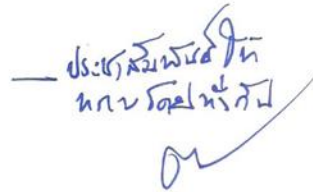 — ประชาสัมพันธ์ให้
ทราบโดยทั่วกัน